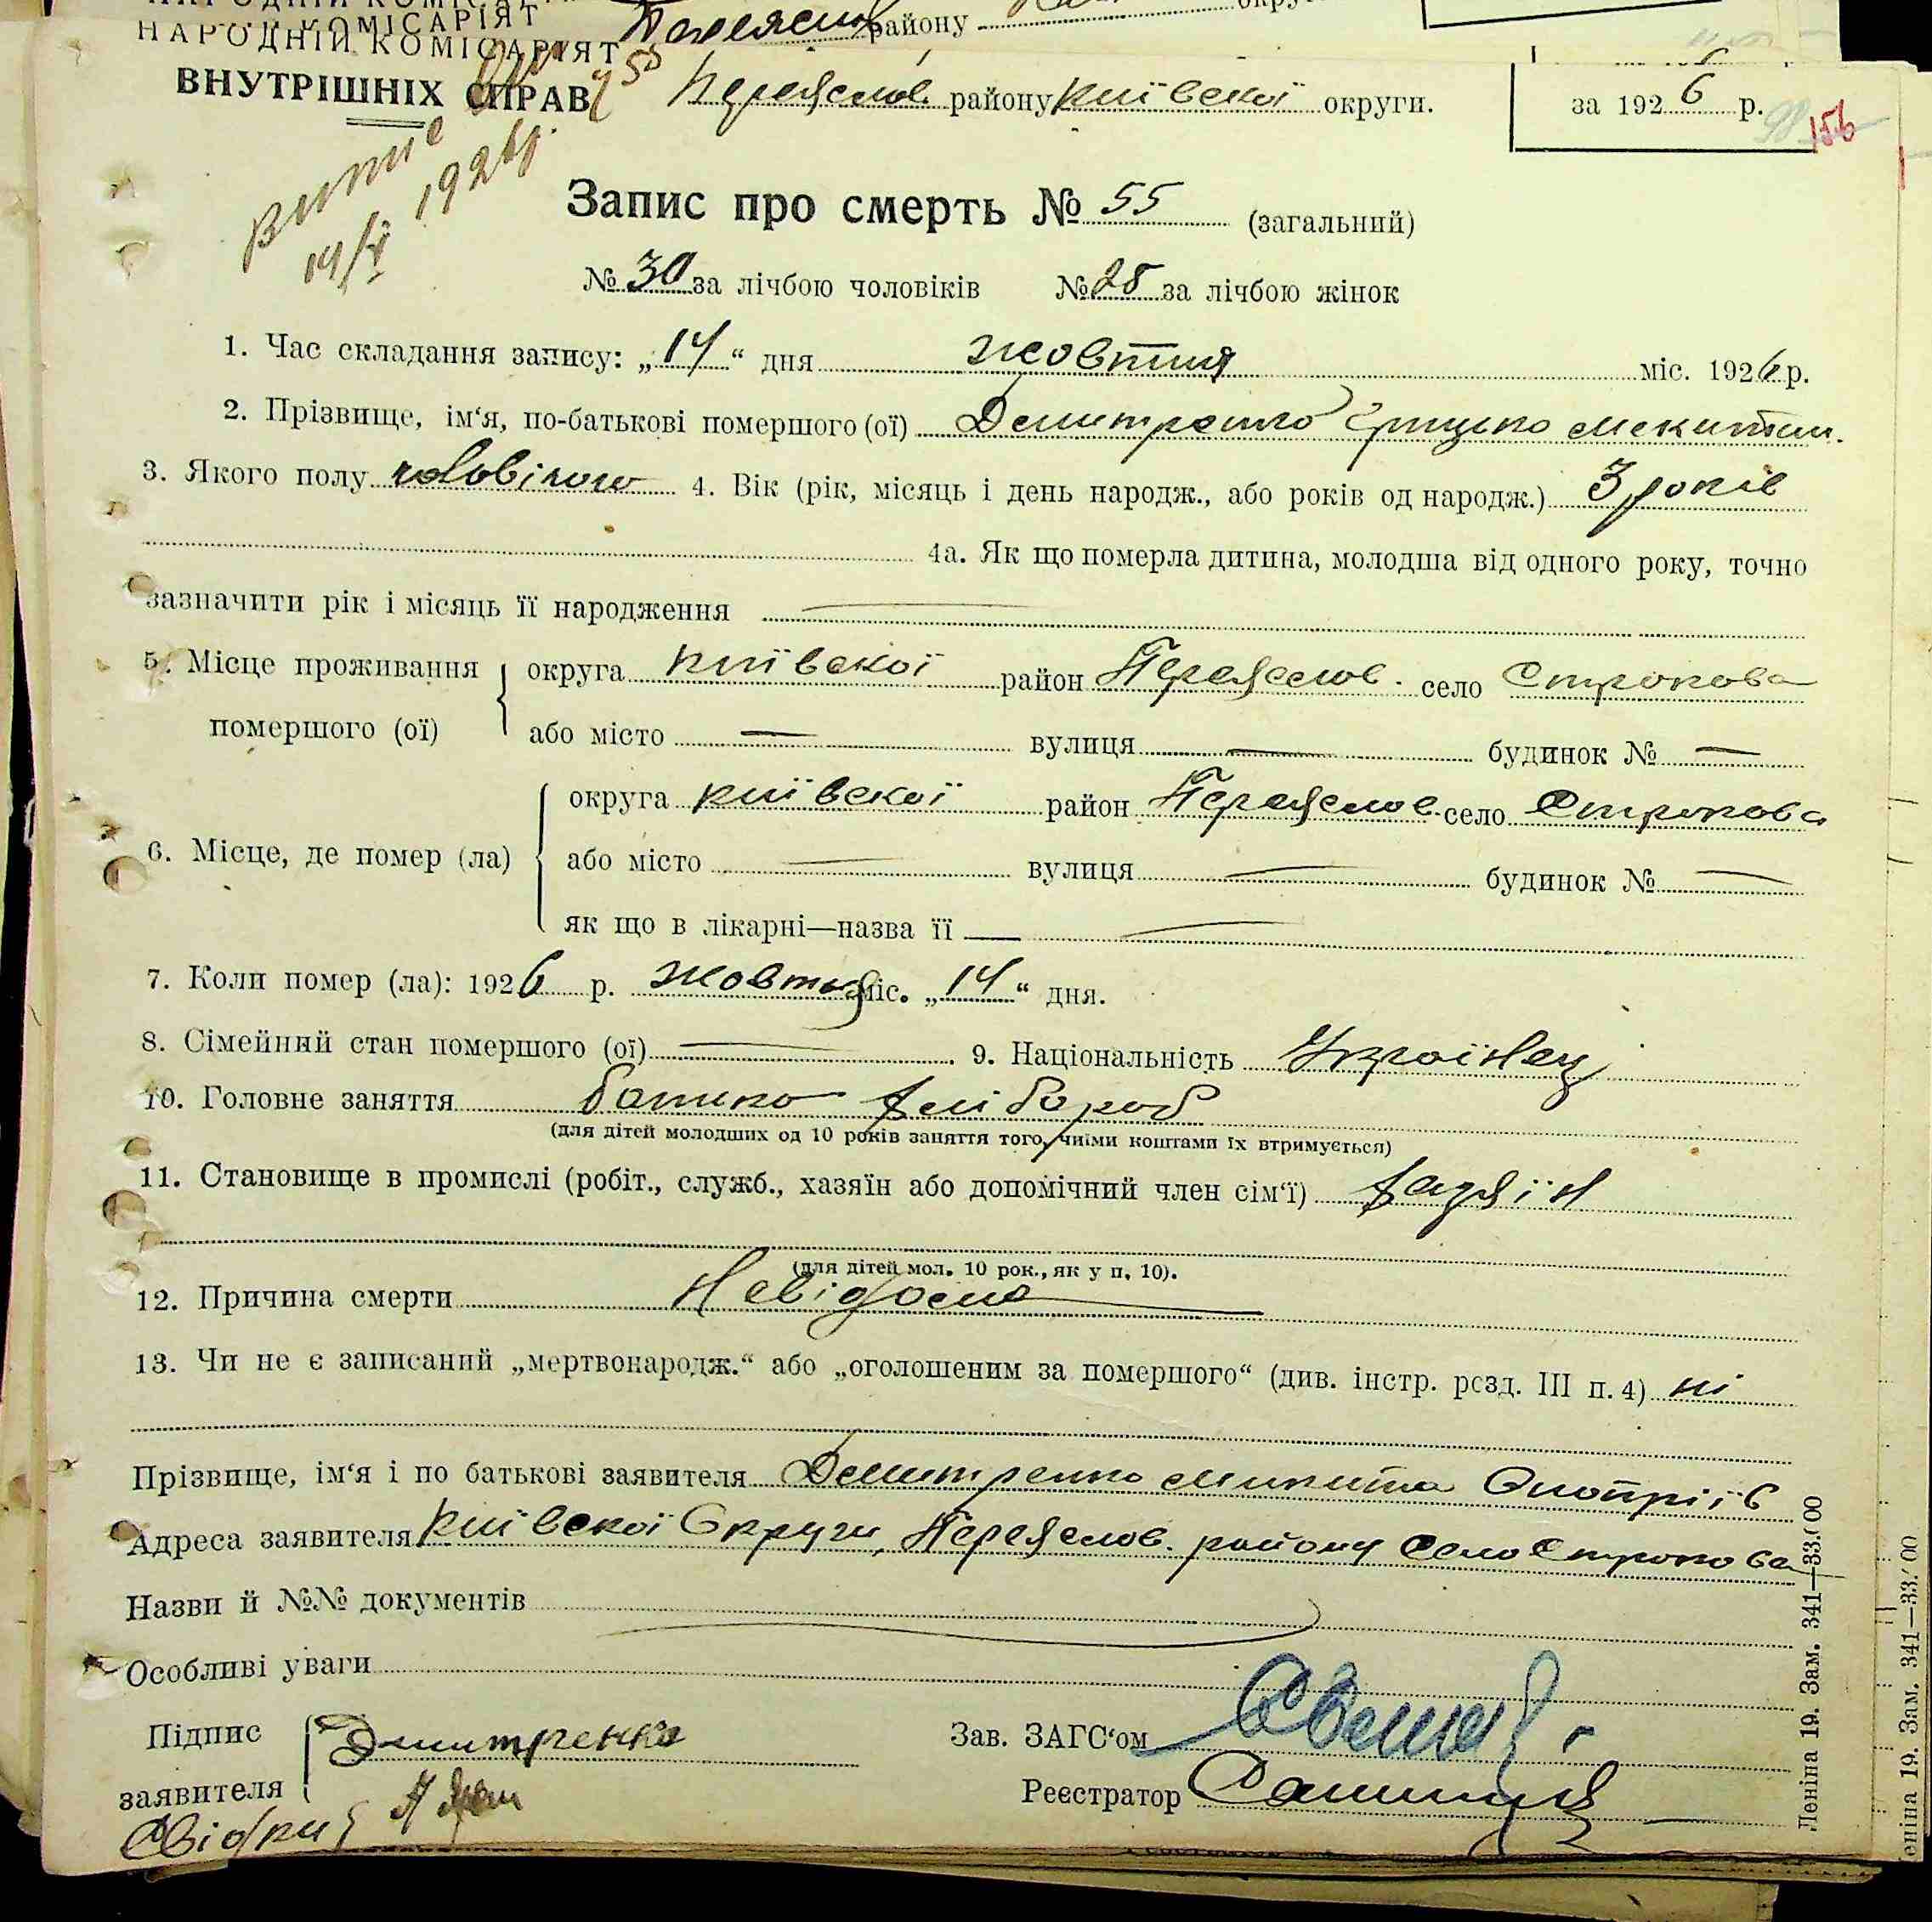 НАРОДНІЙ КОМІСАРІЯТ району
НАРОДНІЙ КОМІСАРІЯТ
ВНУТРІШНІХ СПРАВ Переяслов. району київської округи. за 1926 р. 156
1926 р.
Запис про смерть № 55 (загальний)
№ 30 за лічбою чоловіків № 25 за лічбою жінок
1. Час складання запису: „14“ дня жовтня міс. 1926 р.
2. Прізвище, ім‘я, по-батькові помершого (ої) Грицько
3. Якого полу 4. Вік (рік, місяць і день народж., або років од народж.) 3 років
4а. Як що померла дитина, молодша від одного року, точно
зазначити рік і місяць її народження —
5. Місце проживання округа київської район Переяслов. село Строкова
помершого (ої) або місто — вулиця — будинок № —
округа київської район Переяслов. село Строкова
6. Місце, де помер (ла) або місто — вулиця — будинок № —
як що в лікарні—назва її —
7. Коли помер (ла): 1926 р. жовтня міс. „14“ дня.
8. Сімейний стан помершого (ої) — 9. Національність Українец
10. Головне заняття батько хлібороб
(для дітей молодших од 10 років заняття того, чиїми коштами їх втримується)
11. Становище в промислі (робіт., служб., хазяїн або допомічний член сім‘ї) хазяїн
(для дітей мол. 10 рок., як у п. 10).
12. Причина смерти Невідома
13. Чи не є записаний „мертвонародж.“ або „оголошеним за помершого“ (див. інстр. розд. III п. 4) ні
Прізвище, ім‘я і по батькові заявителя Демитренко Микита
Адреса заявителя київської Округи, Переяслов. району Село Строкова
Назви й №№ документів
Особливі уваги
Підпис Дмитренко Зав. ЗАГС‘ом
заявителя Реєстратор
Леніна 19. Зам. 341—33.000